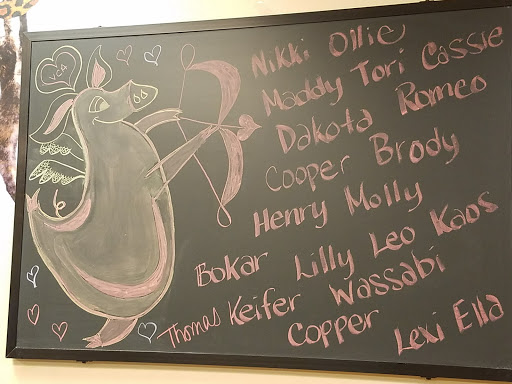 VCA
Nikki Ollie
Maddy Tori Cassie
Dakota Romeo
Cooper Brody
Henry Molly
Bokar Lilly Leo Kaos
Thomas Keifer Wassabi
Copper Lexi Ella